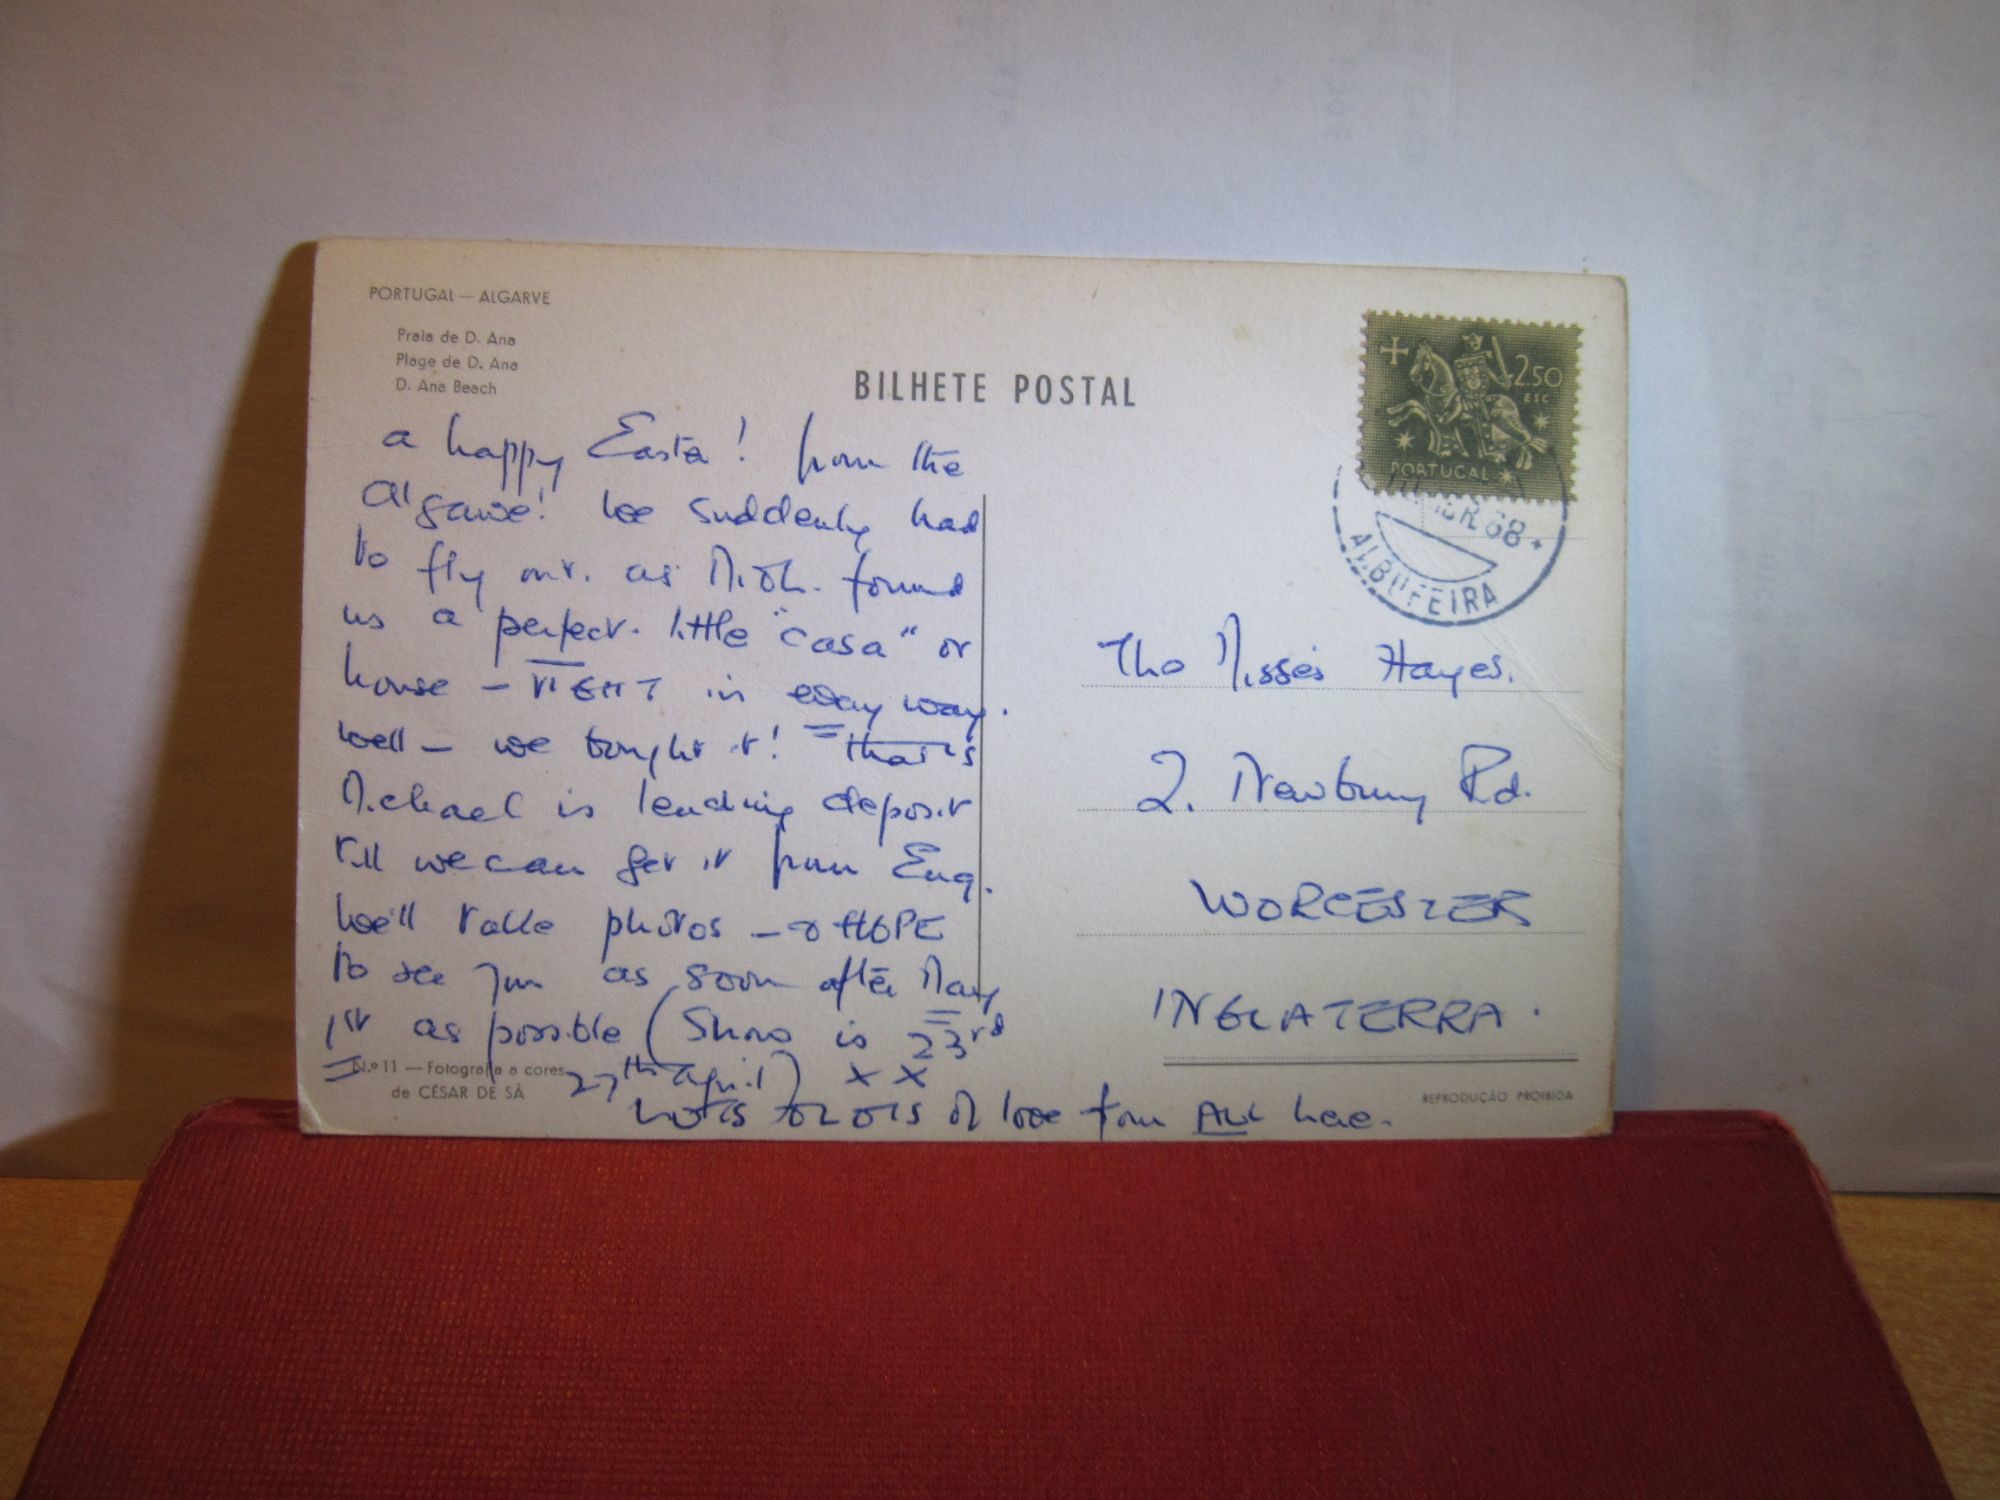 PORTUGAL — ALGARVE
Praia de D. Ana
Plage de D. Ana
D. Ana Beach
BILHETE POSTAL
2.50
ESC.
PORTUGAL
ABR. 68
ALBUFEIRA
a happy Easter! from the
Algarve! We suddenly had
to fly out. as Mich. found
us a perfect little "casa" or
house — RIGHT in every way.
Well — we bought it! that's
Michael is lending deposit
till we can get it from Eng.
We'll take photos — & HOPE
to see you as soon after May
1st as possible (Show is 23rd
27th April) X X
lots of love from ALL here.
The Misses Hayes.
2. Newbury Rd.
WORCESTER
INGLATERRA.
N.º 11 — Fotografia a cores
de CÉSAR DE SÁ
REPRODUÇÃO PROIBIDA